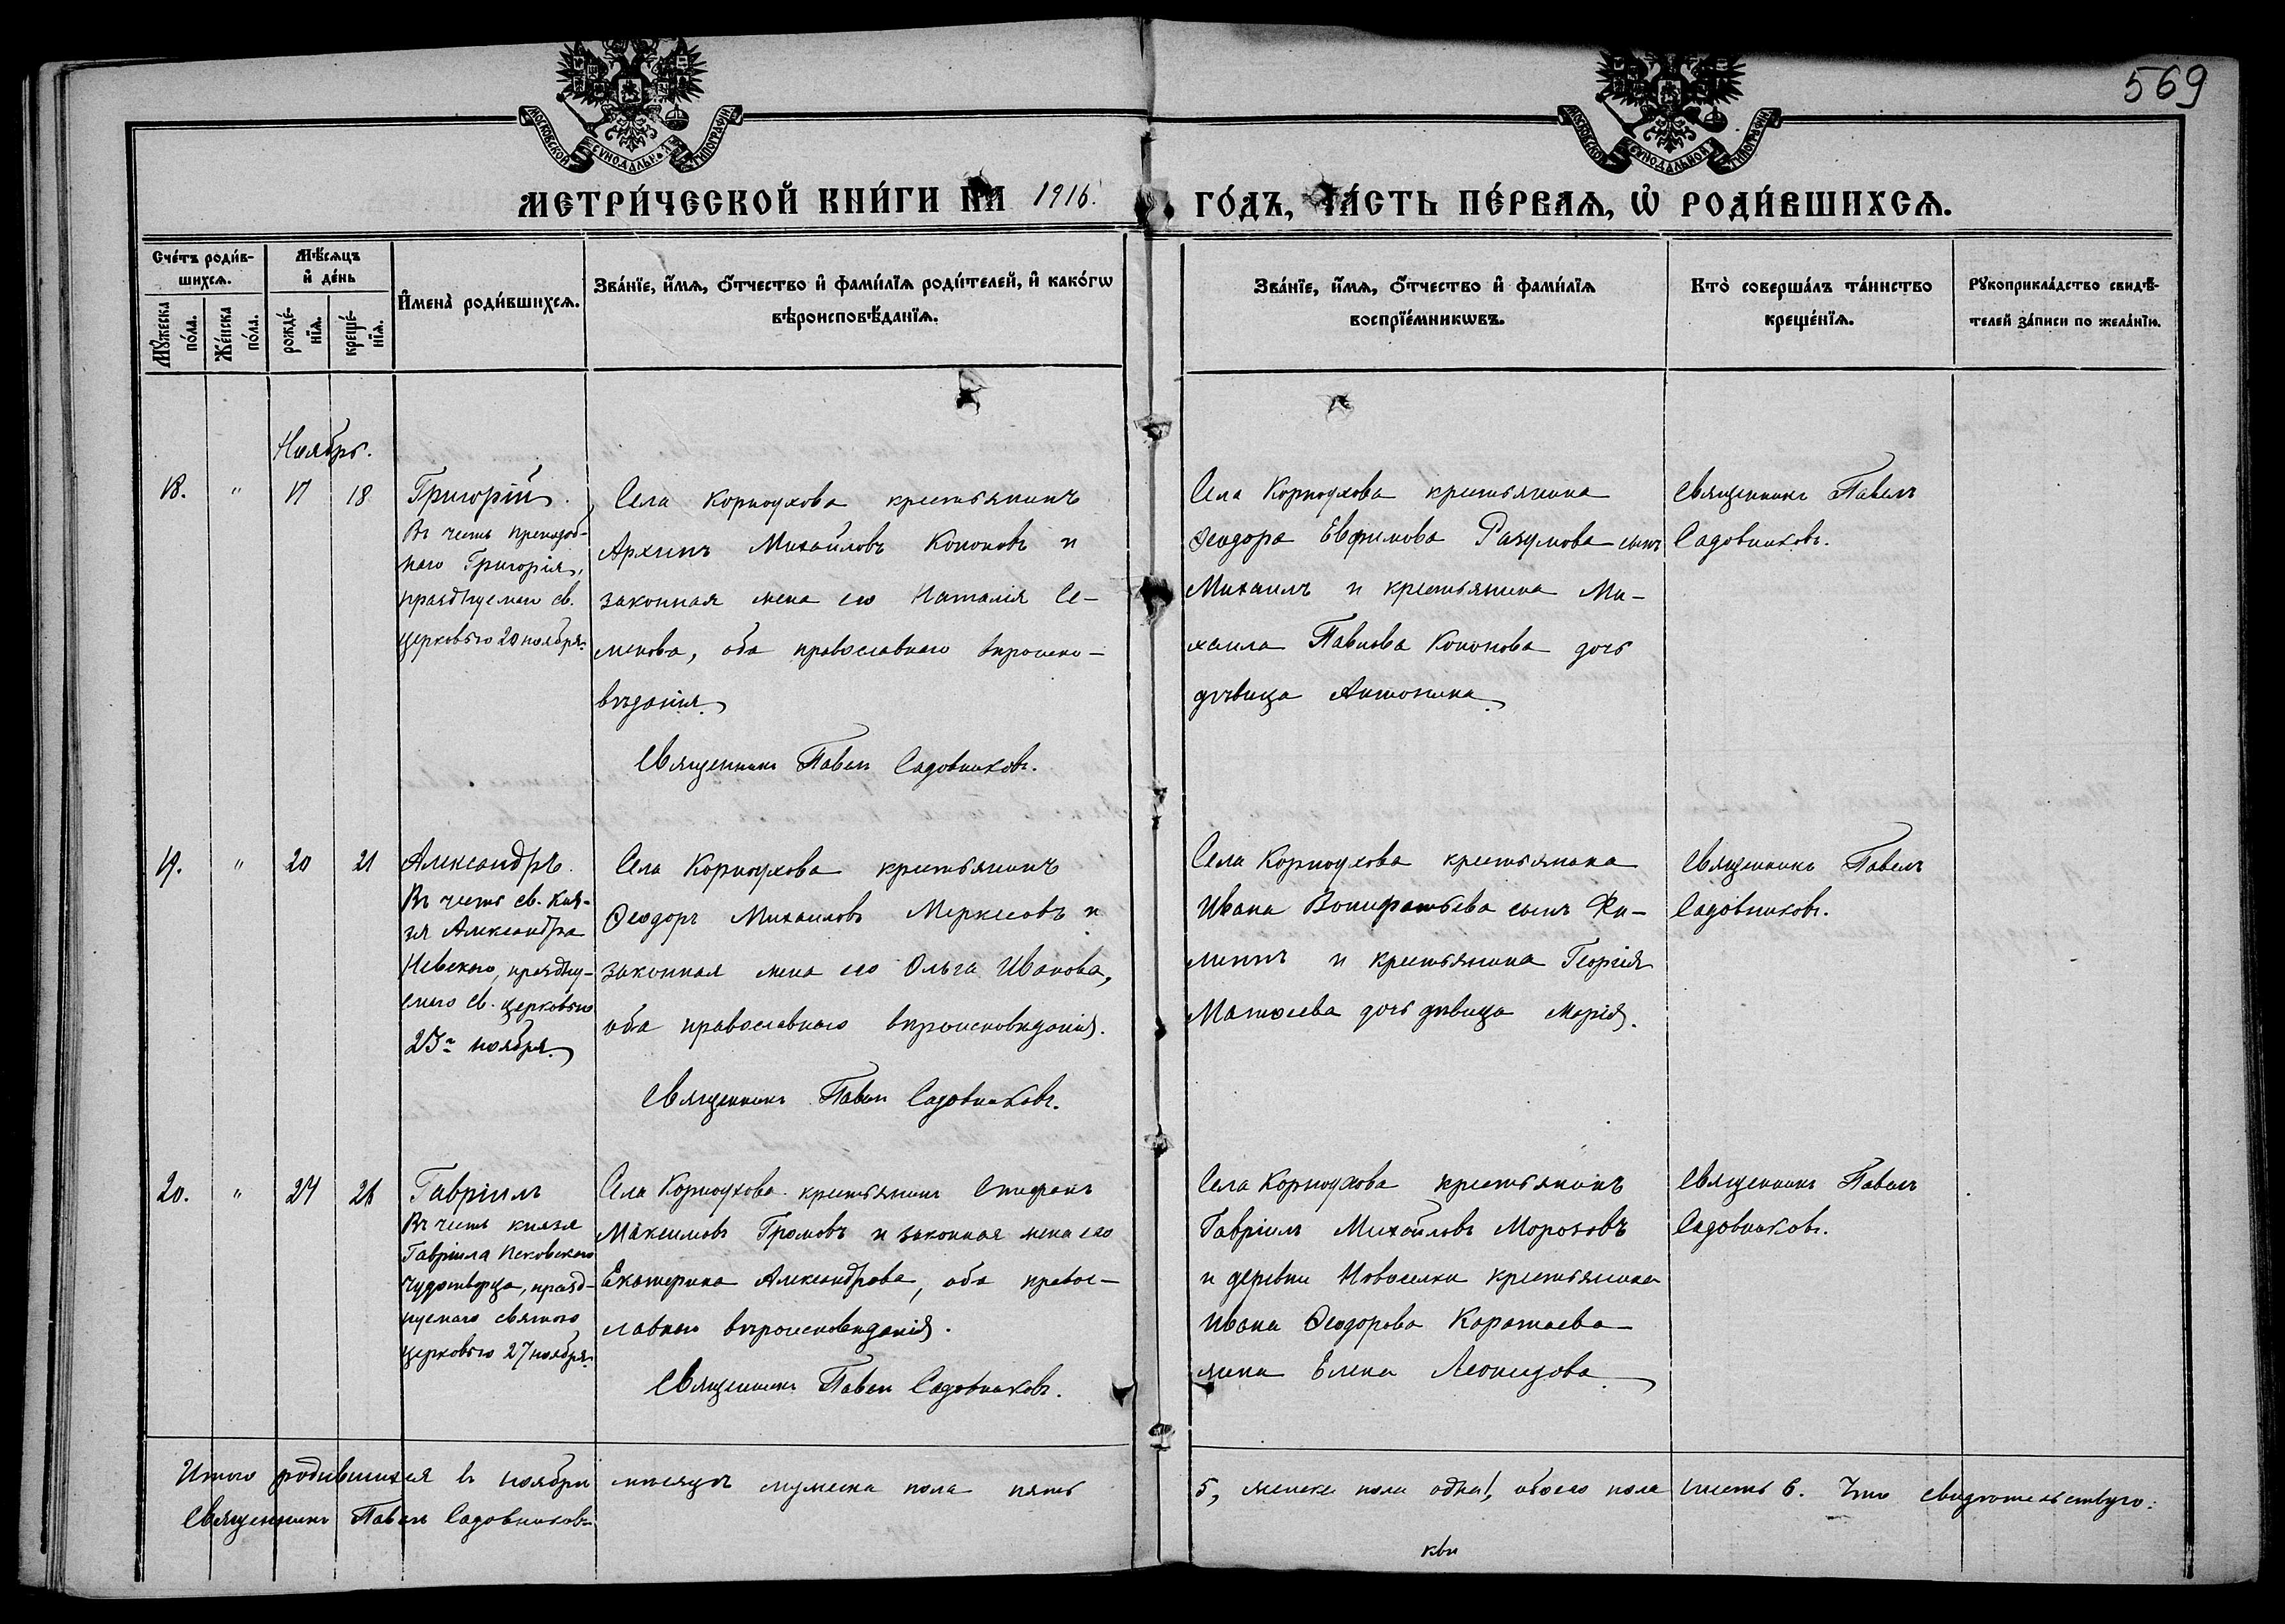 569
МОСКОВСКОЙ СѴНОДАЛЬНОЙ ТИПОГРАФІИ
МОСКОВСКОЙ СѴНОДАЛЬНОЙ ТИПОГРАФІИ
МЕТРИ́ЧЕСКОЙ КНИ́ГИ НА 1916.
ГО́ДЪ, ЧА́СТЬ ПЕ́РВАѦ, Ѡ҆ РОДИ́ВШИХСѦ.
Сче́тъ роди́в-
шихсѧ.
Мꙋ́жеска по́ла.
Же́нска по́ла.
Мѣ́сѧцъ
и҆ де́нь
рожде́-
нїѧ.
креще́-
нїѧ.
И҆мена̀ роди́вшихсѧ.
Зва́нїе, и҆́мѧ, ѻ҆́тчество и҆ фами́лїѧ роди́телей, и҆ како́гѡ
вѣроисповѣ́данїѧ.
Зва́нїе, и҆́мѧ, ѻ҆́тчество и҆ фами́лїѧ
воспрїе́мникѡвъ.
Кто̀ соверша́лъ та́инство
креще́нїѧ.
Рꙋкоприкла́дство свидѣ́-
телей за́писи по жела́нїю.
Ноябрь.
18. " 17 18
Григорій.
Въ честь преподоб-
наго Григорія,
празднуемаго св.
церковью 20 ноября.
Села Корноухова крестьянинъ
Архипъ Михайловъ Кононовъ и
законная жена его Наталія Се-
менова, оба православнаго вѣроиспо-
вѣданія.
Священникъ Павелъ Садовниковъ.
Села Корноухова крестьянина
Ѳеодора Евфимова Разумова сынъ
Михаилъ и крестьянина Ми-
хаила Павлова Кононова дочь
дѣвица Антонина.
Священникъ Павелъ
Садовниковъ.
19. " 20 21
Александръ.
Въ честь св. Кня-
зя Александра
Невскаго, праздну-
емаго св. церковью
23го ноября.
Села Корноухова крестьянинъ
Ѳеодоръ Михаиловъ Меркеловъ и
законная жена его Ольга Иванова,
оба православнаго вѣроисповѣданія.
Священникъ Павелъ Садовниковъ.
Села Корноухова крестьянина
Ивана Вонифатьева сынъ Фи-
липпъ и крестьянина Георгія
Матвеева дочь дѣвица Марія.
Священникъ Павелъ
Садовниковъ.
20. " 24 26
Гавріилъ
Въ честь князя
Гавріила Псковскаго
чудотворца, празд-
нуемаго святою
церковью 27 ноября.
Села Корноухова крестьянинъ Стефанъ
Максимовъ Громовъ и законная жена его
Екатерина Александрова, оба правос-
лавнаго вѣроисповѣданія.
Священникъ Павелъ Садовниковъ.
Села Корноухова крестьянинъ
Гавріилъ Михайловъ Морозовъ
и деревни Новоселки крестьянина
Ивана Ѳеодорова Каратаева
жена Елена Леонидова.
Священникъ Павелъ
Садовниковъ.
Итого родившихся въ ноябрѣ мѣсяцѣ мужеска пола пять 5, женска пола одна 1, обоего пола шесть 6. Что свидѣтельствую:
Священникъ Павелъ Садовниковъ